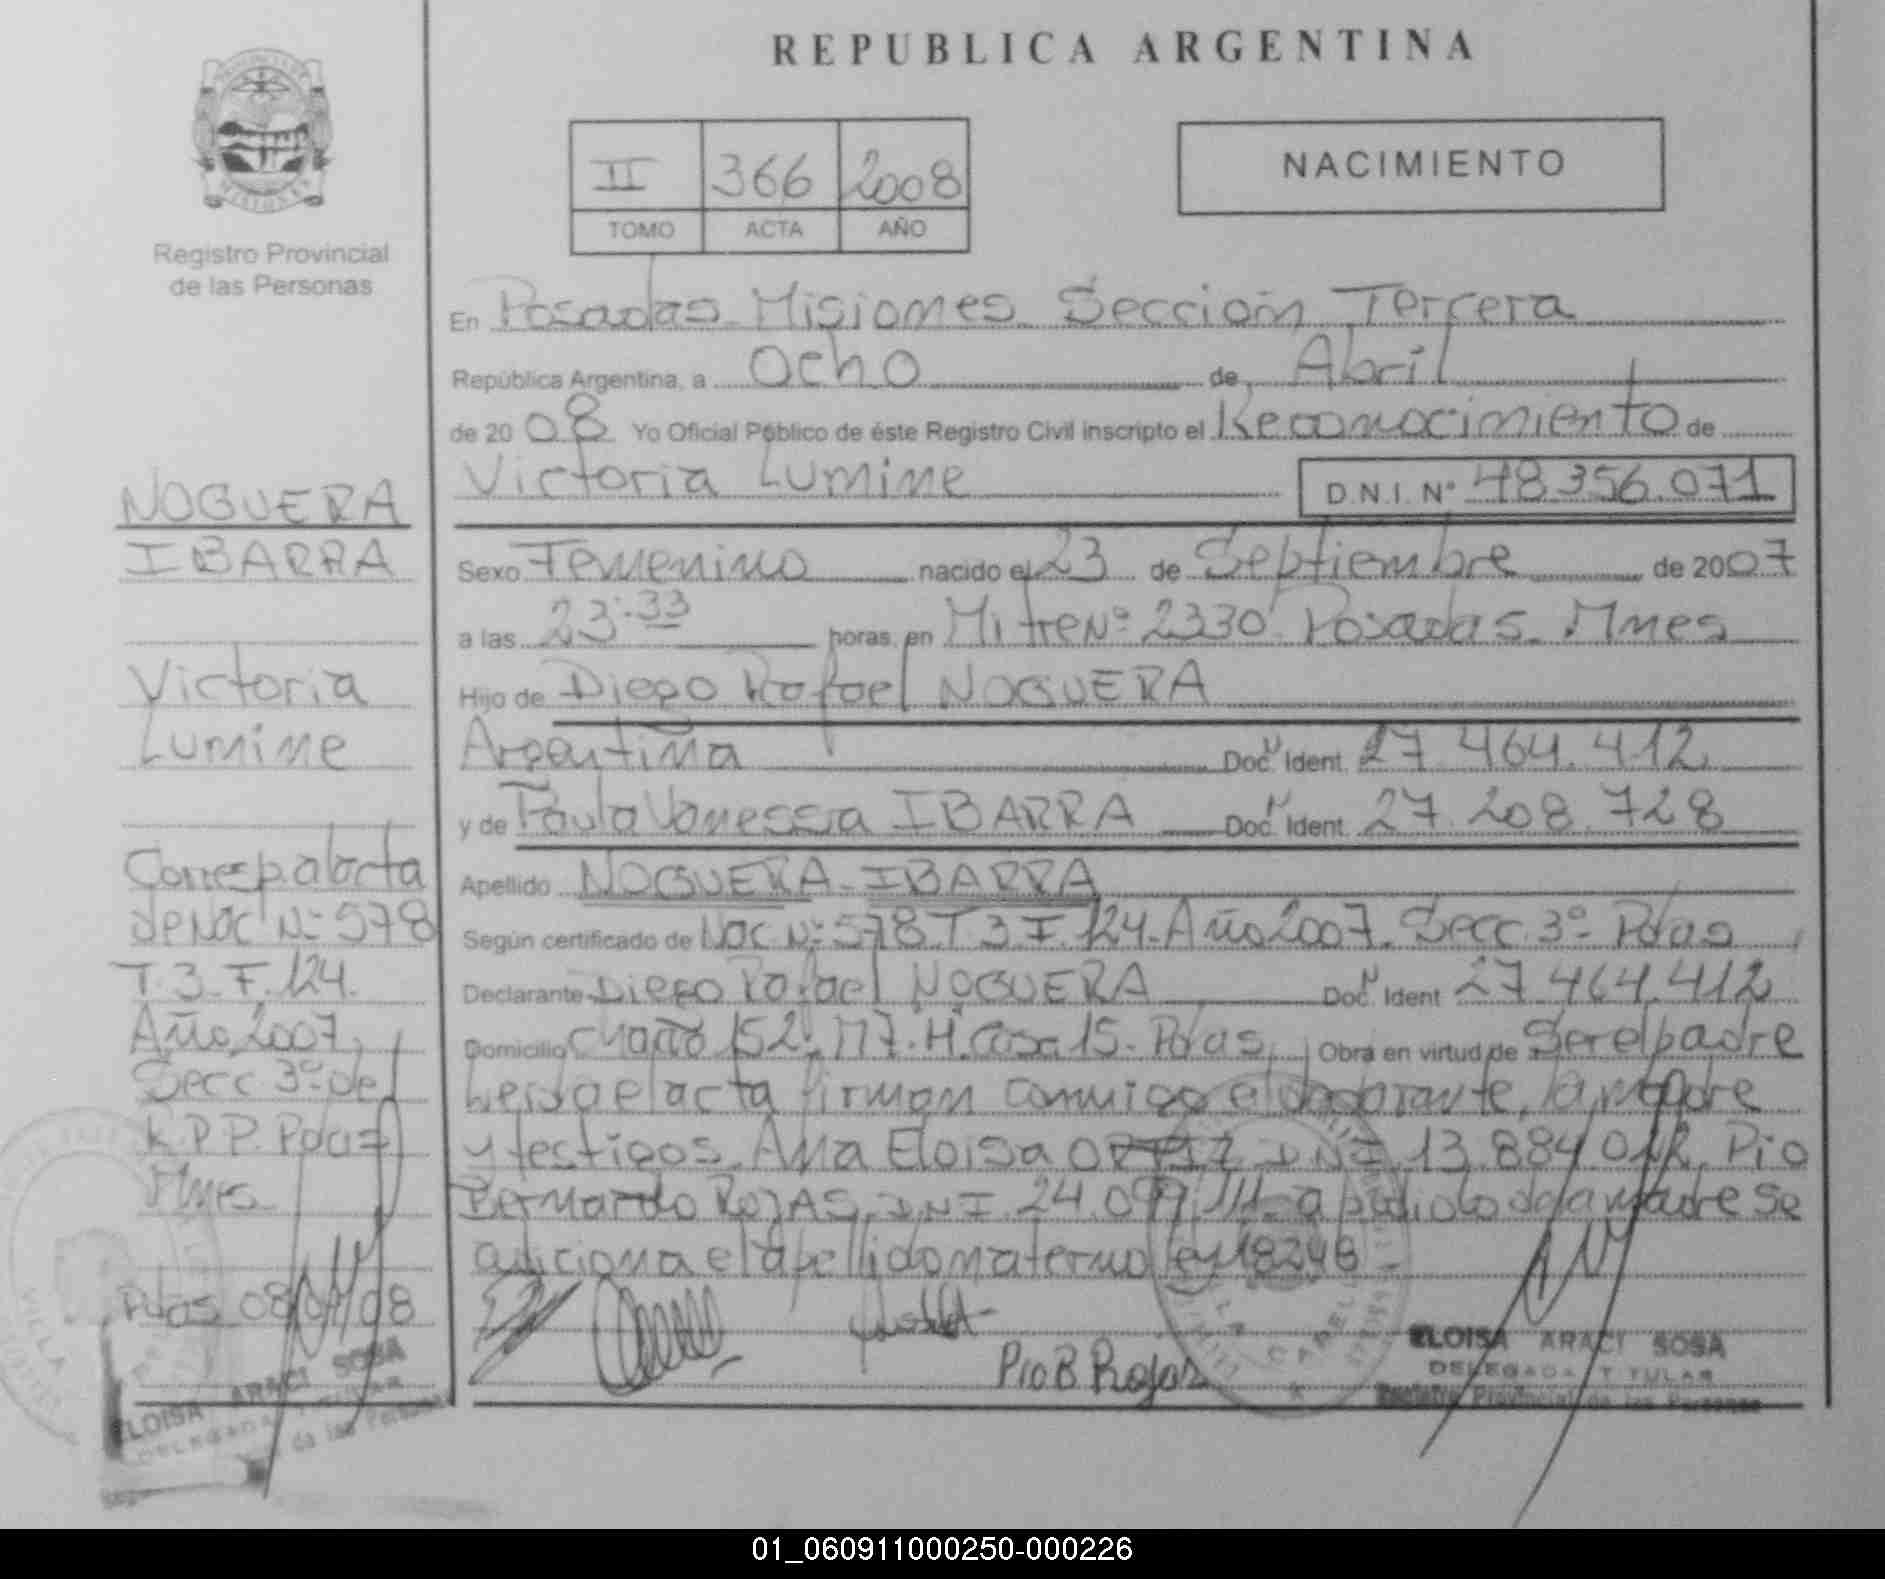 REPUBLICA ARGENTINA
NACIMIENTO
II 366 2008
TOMO ACTA AÑO
Registro Provincial
de las Personas
En Posadas Misiones Sección Tercera
República Argentina, a Ocho de Abril
de 2008 Yo Oficial Público de éste Registro Civil inscripto el Reconocimiento de
Victoria Lumine D.N.I. Nº 48.356.071
Sexo Femenino nacido el 23 de Septiembre de 2007
a las 23:33 horas, en Mitre Nº 2330 Posadas Mnes
Hijo de Diego Rafael NOGUERA
Argentina Doc. Ident. 27.464.412
y de Paula Vanessa IBARRA Doc. Ident. 27.208.728
Apellido NOGUERA-IBARRA
Según certificado de Nac Nº 578 T 3 F 124 Año 2007 Secc 3º Pdas
Declarante Diego Rafael NOGUERA Doc. Ident 27.464.412
Domicilio 152 M7. H. Casa 15. Pdas Obra en virtud de Ser el padre
Leida el acta firman conmigo el declarante, la madre
y testigos Ana Eloisa DNI 13.884. Pio
Bernardo ROJAS DNI 24.099.111 a pedido de la madre se
adiciona el apellido materno ley 18248
Pio B Rojas
ELOISA ARACI SOSA
DELEGADA TITULAR
Registro Provincial de las Personas
NOGUERA
IBARRA
Victoria
Lumine
Corresp. al acta
de Nac Nº 578
T. 3 F. 124.
Año 2007
Secc 3º del
R.P.P. Pdas
Mnes
Pdas 08/04/08
ELOISA ARACI SOSA
DELEGADA TITULAR
de las Personas
01_060911000250-000226